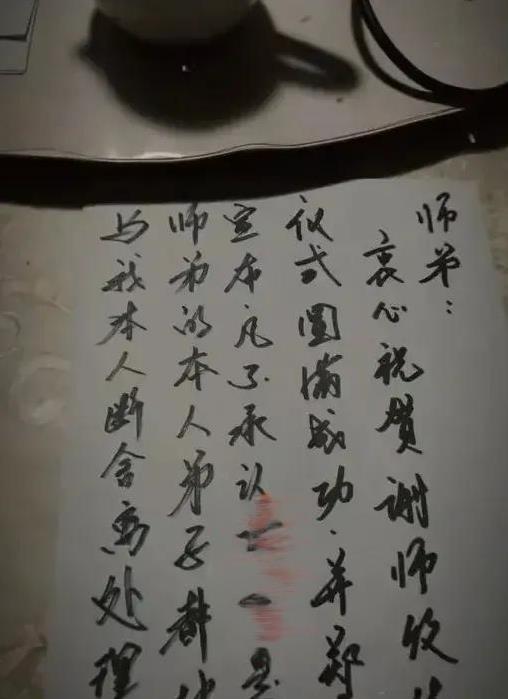 师弟：
衷心祝贺谢师收
仪式圆满成功.并郑
宣布凡不承认一一是
师弟的本人弟子都
与我本人断舍离处理